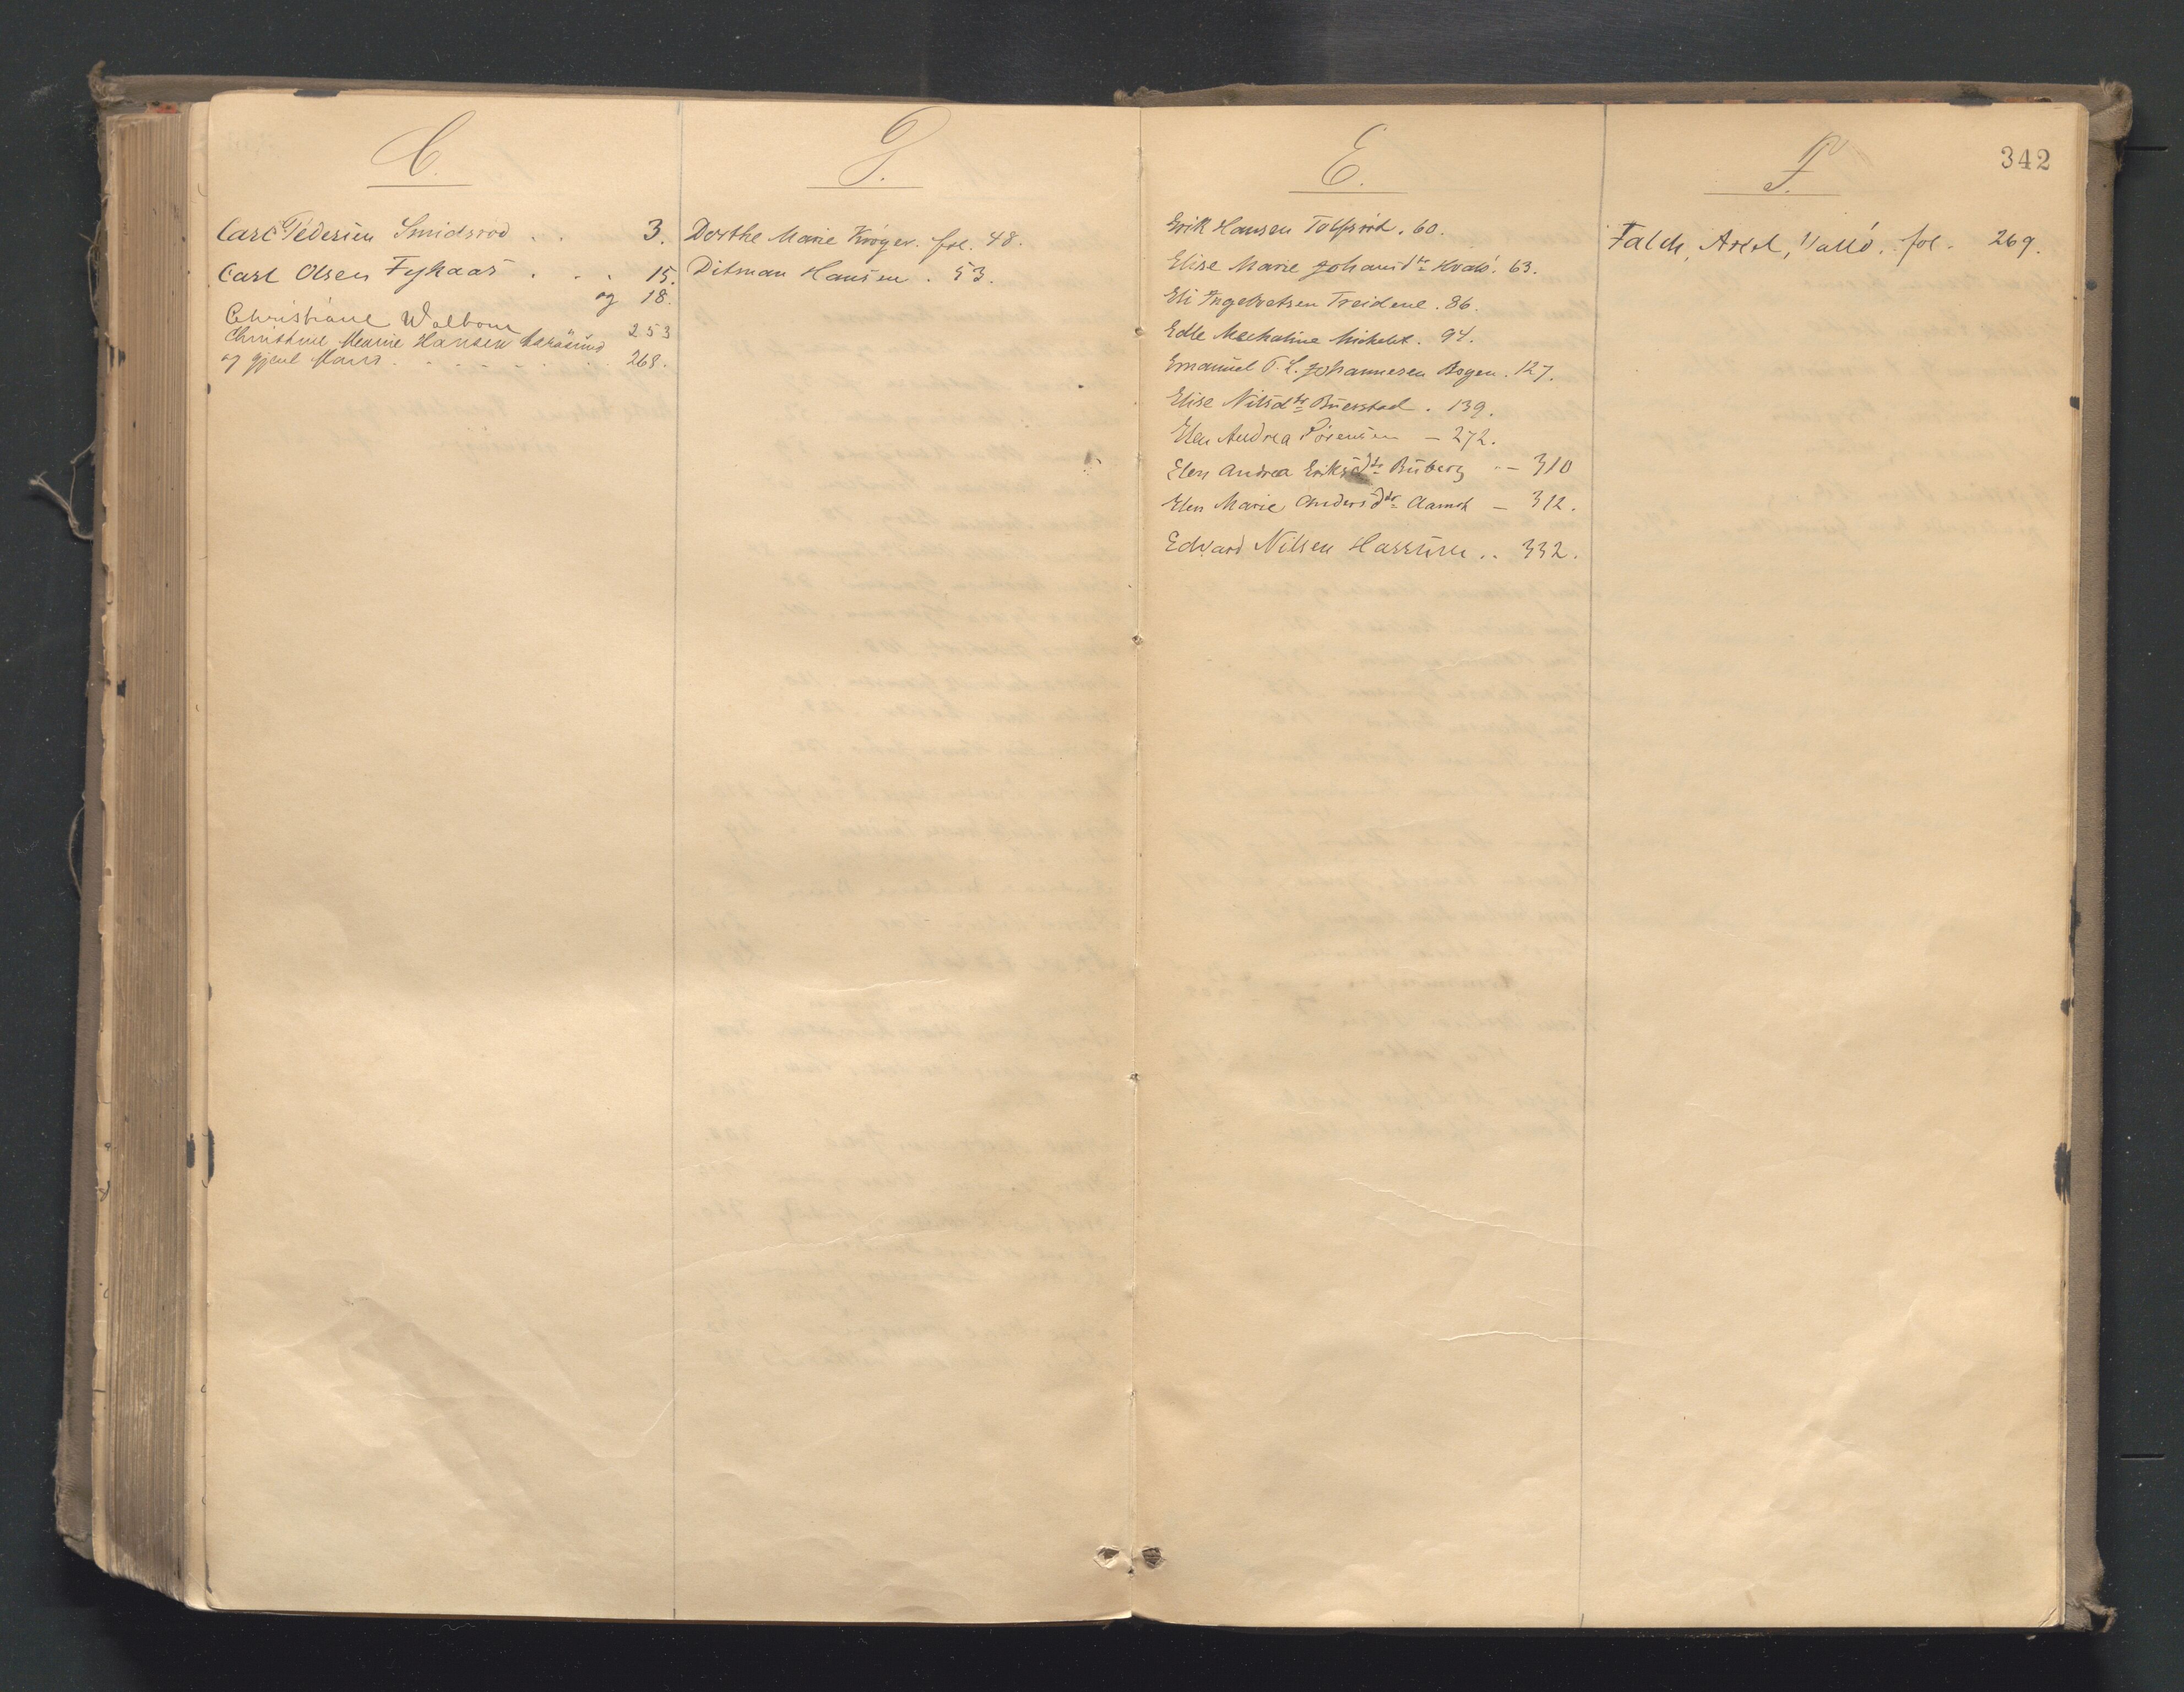 C.
Carl Pedersen Smidsrød . . 3.
Carl Olsen Fykaas . . . 15.
og 18.
Christiane Walbom 253
Christine Marie Hansen
og gjenl Mand . . . . . . . 268.
D.
Dorthe Marie Krøger. fol. 48.
Ditman Hansen . 53.
E.
Erik Hansen Tolfsröd . 60.
Elise Marie Johansdtr Kvalö. 63.
Eli Ingebretsen Treidene . 86.
Edle Michelet . 94.
Emanuel T. L. Johannesen Bogen . 127.
Elise Nilsdtr Buerstad . 139.
Elen Andrea Sörensen — 272.
Elen Andrea Eriksdtr Buberg - — 310
Elen Marie Andersdtr Aamot — 312.
Edvard Nilsen Hassum . . 332.
F.
342
Falch, Axel, Vallö . fol . 269.